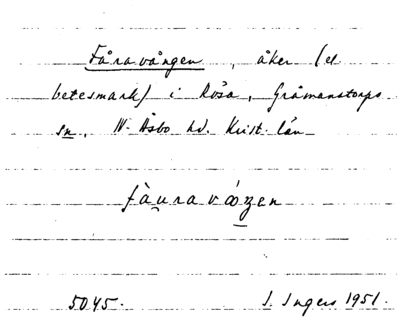 Fåravången, åker (el
betesmark) i Rösa, Gråmanstorps
sn, N. Åsbo hd. Krist. län
fàuravåŋen
5045. I. Ingers 1951.